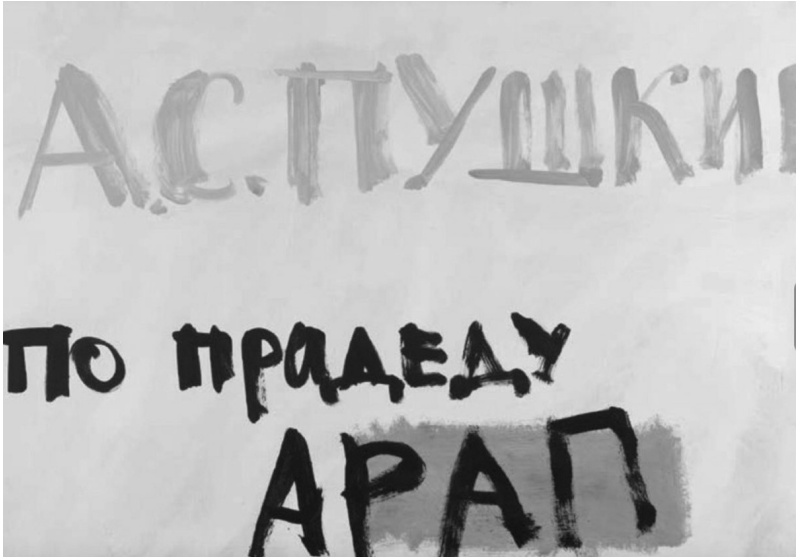 А.С.ПУШКИН
ПО ПРАДЕДУ
АРАП